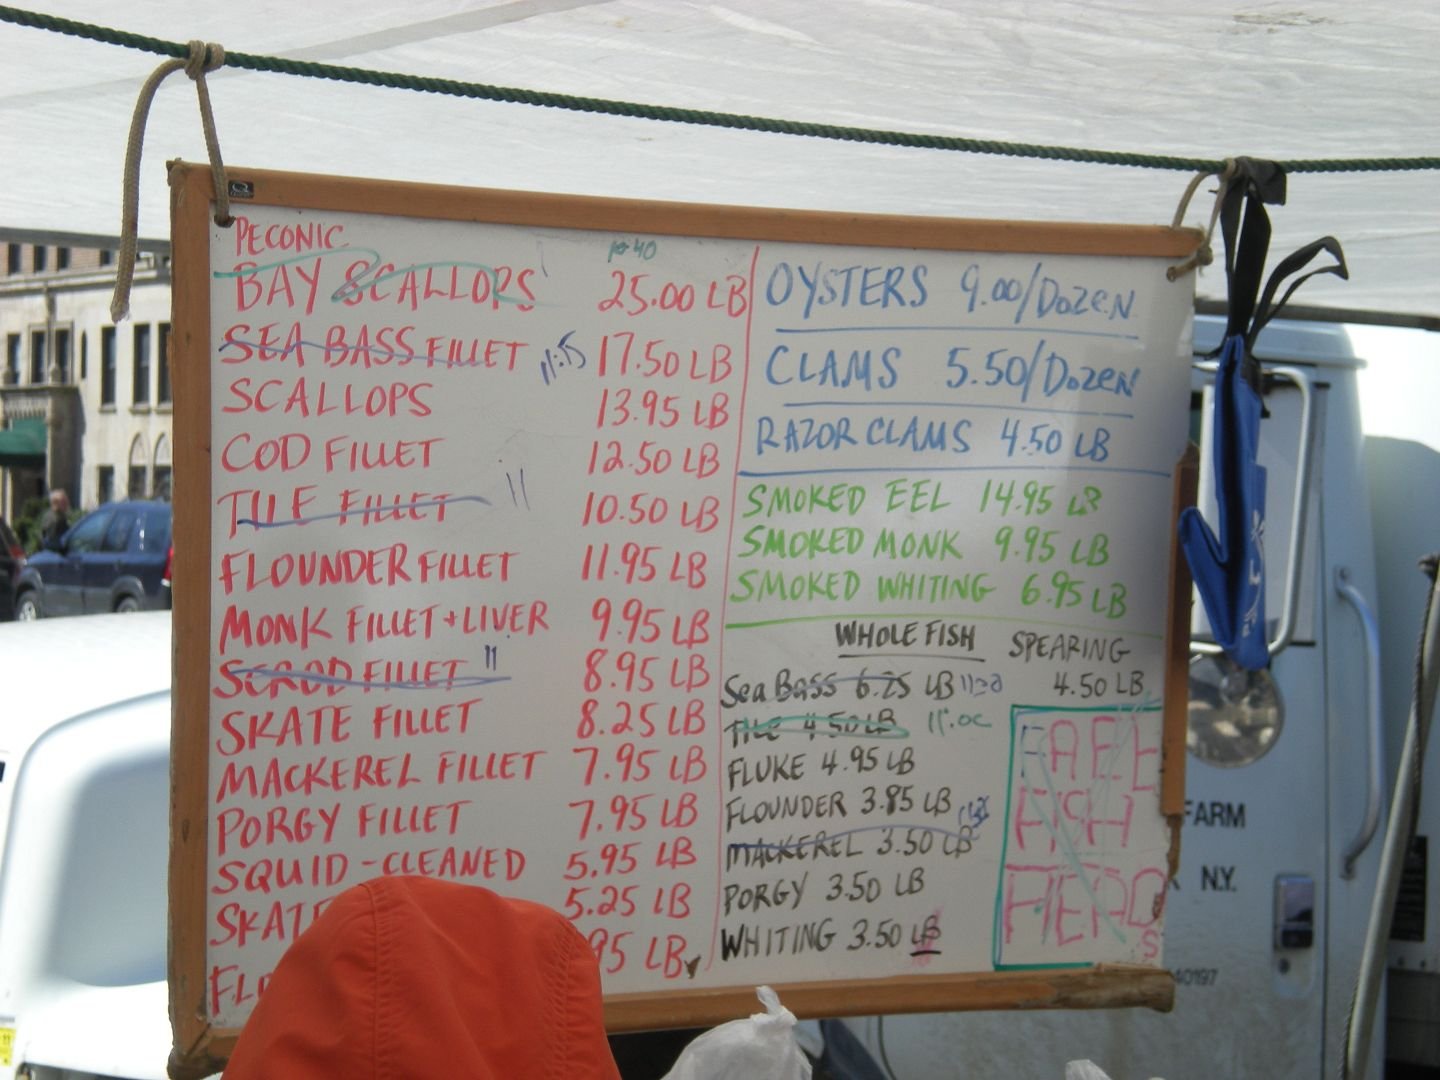 PECONIC
BAY SCALLOPS 25.00 LB
SEA BASS FILLET 11:15 17.50 LB
SCALLOPS 13.95 LB
COD FILLET 12.50 LB
TILE FILLET 11 10.50 LB
FLOUNDER FILLET 11.95 LB
MONK FILLET + LIVER 9.95 LB
SCROD FILLET 11 8.95 LB
SKATE FILLET 8.25 LB
MACKEREL FILLET 7.95 LB
PORGY FILLET 7.95 LB
SQUID - CLEANED 5.95 LB
SKATE 5.25 LB
95 LB
OYSTERS 9.00/DOZEN
CLAMS 5.50/DOZEN
RAZOR CLAMS 4.50 LB
SMOKED EEL 14.95 LB
SMOKED MONK 9.95 LB
SMOKED WHITING 6.95 LB
WHOLE FISH
Sea Bass 6.25 LB
TILE 4.50 LB
FLUKE 4.95 LB
FLOUNDER 3.85 LB
MACKEREL 3.50 LB
PORGY 3.50 LB
WHITING 3.50 LB
SPEARING
4.50 LB
FISH
HEADS
FARM
N.Y.